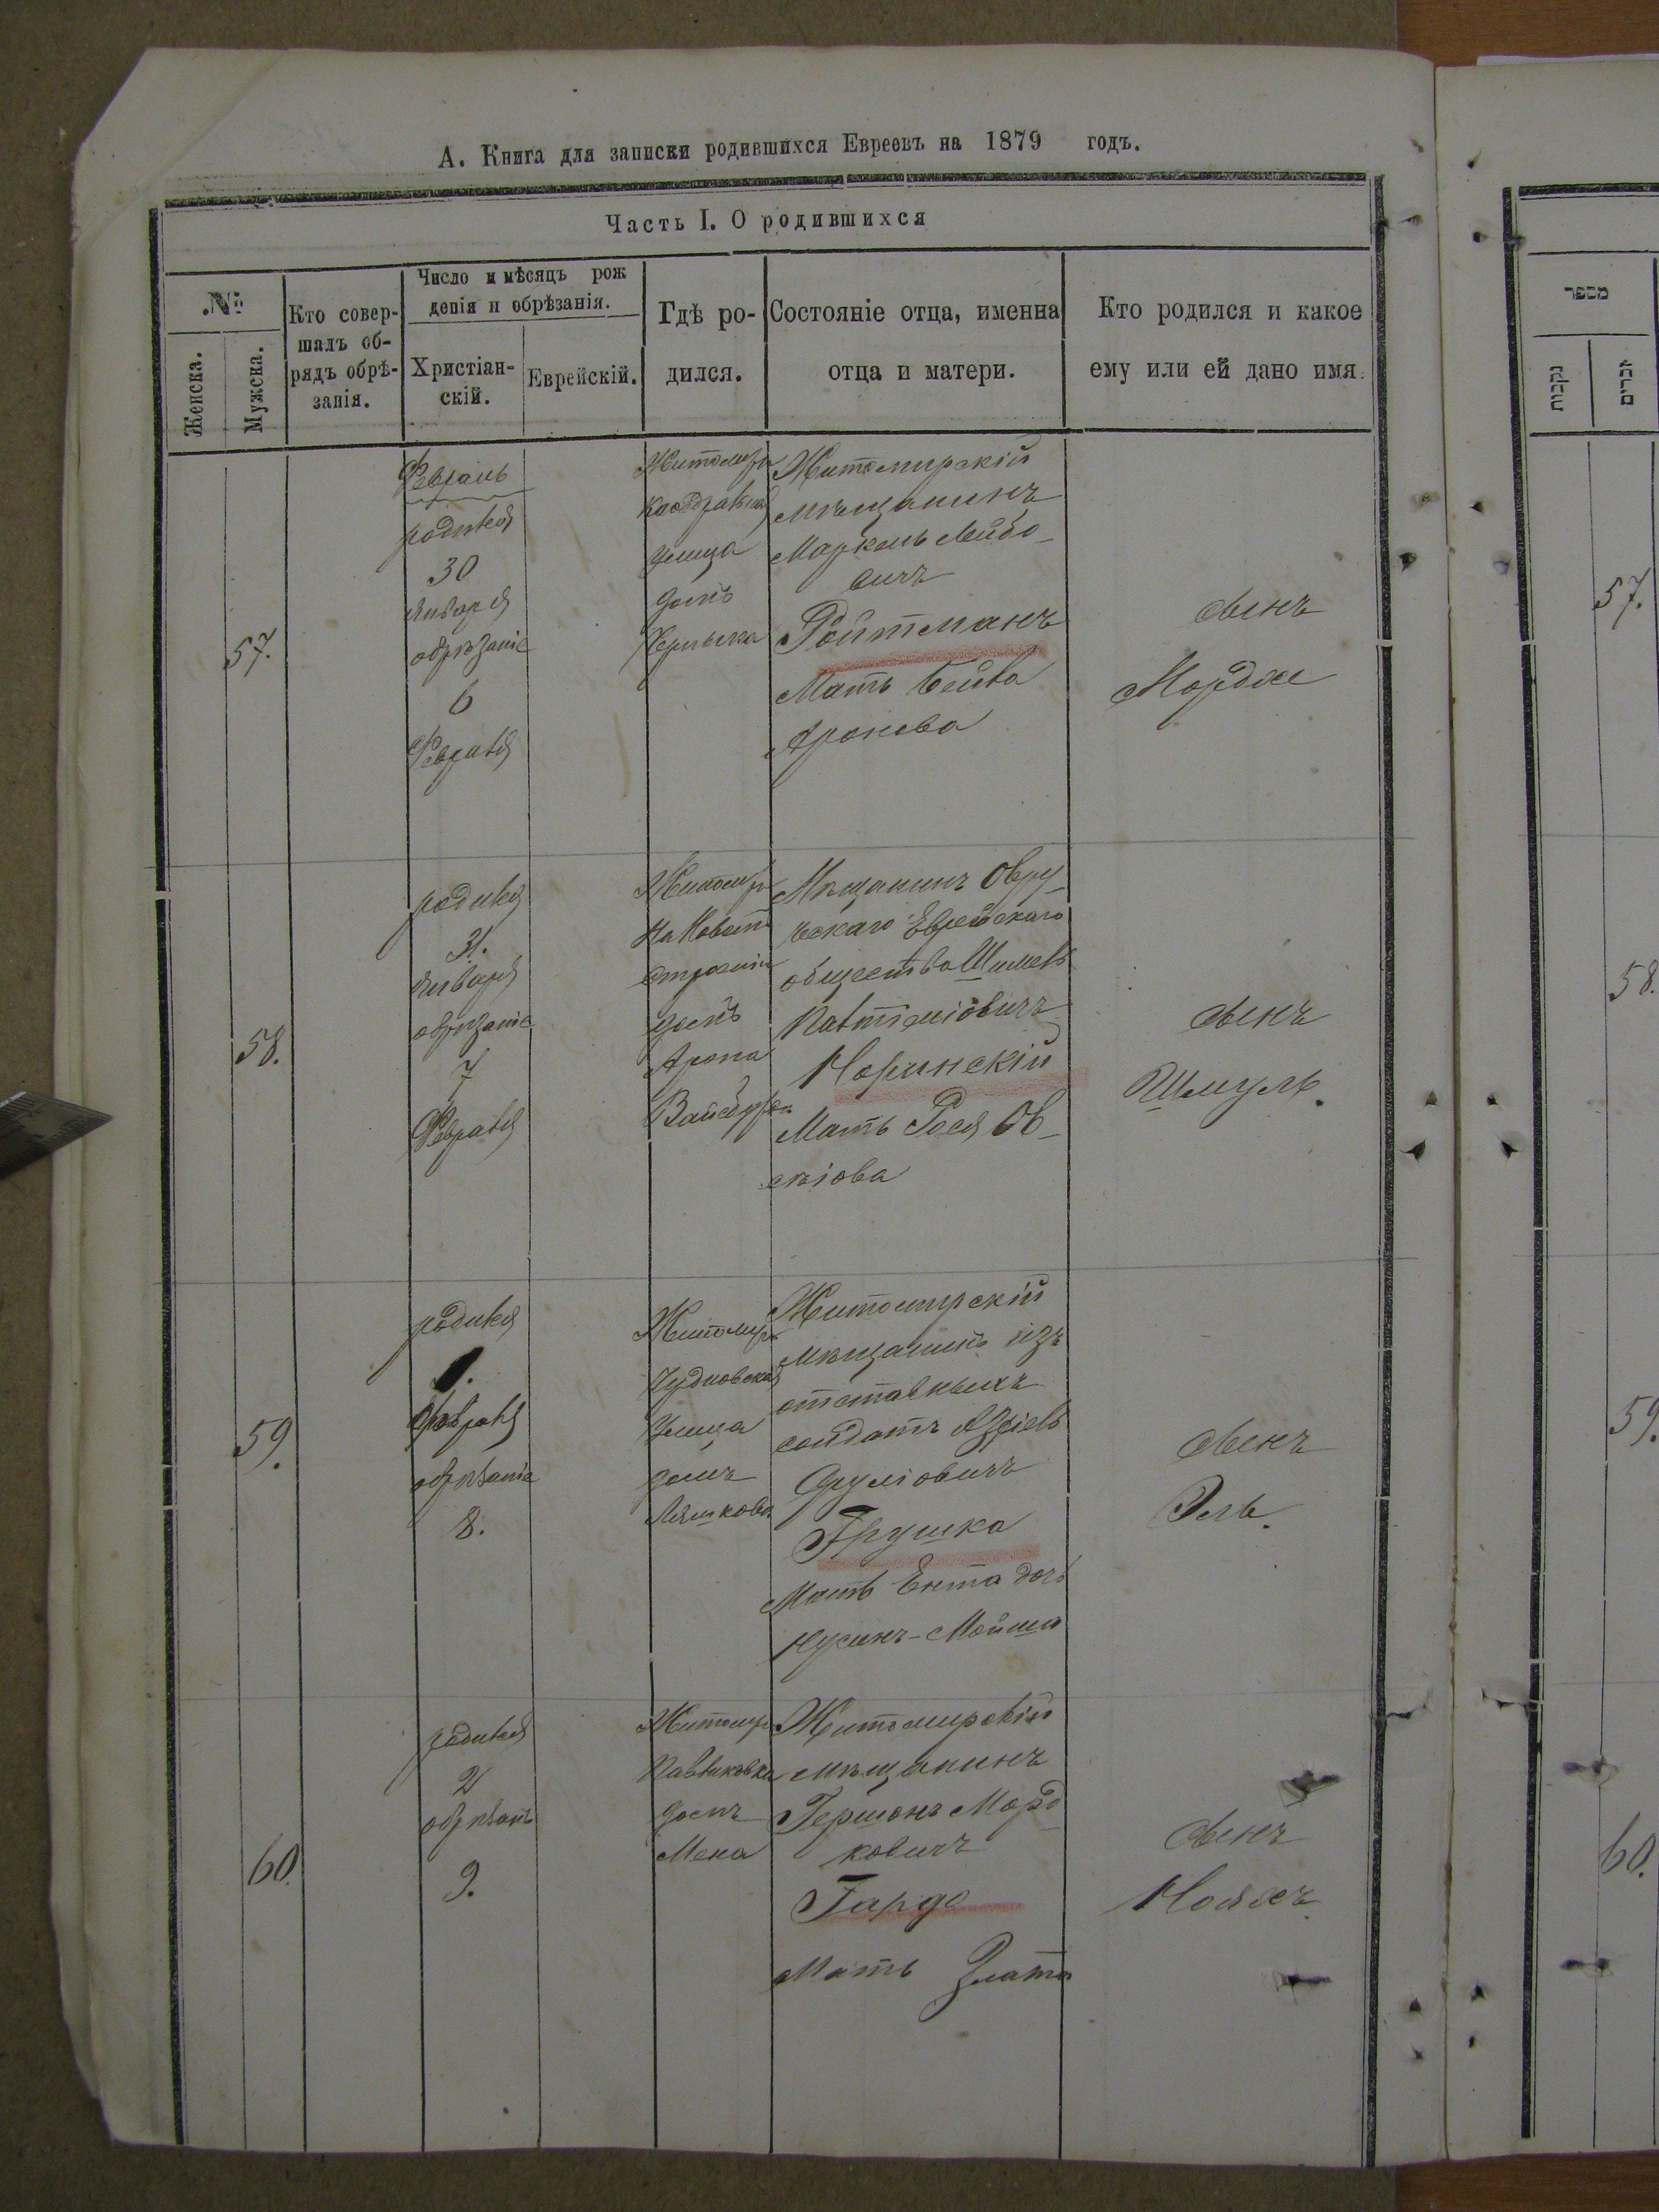 А. Книга для записки родившихся Евреевъ на 1879 годъ.
Часть I. О родившихся
№
Женска.
Мужска.
Кто совер-
шалъ об-
рядъ обрѣ-
занія.
Число и мѣсяцъ рож
денія и обрѣзанія.
Христіан-
скій.
Еврейскій.
Гдѣ ро-
дился.
Состояніе отца, именна
отца и матери.
Кто родился и какое
ему или ей дано имя.
57.
Февраль
родился
30
Января
обрѣзаніе
6
Февраля
Житомиръ
улица
домъ
Житомирскій
мѣщанинъ
Маркель Лейбо-
вичъ
Ройтманъ
Мать Бейла
Аронова
сынъ
Мордхе
58.
родился
31.
Января
обрѣзаніе
7
Февраля
Житомиръ
строеніи
домъ
Арона
Мѣщанинъ Овру-
ческаго Еврейскаго
общества Шимель
Норинскій
Мать Рося Ов-
сѣіова
сынъ
Шмуль.
59.
родился
1.
Февраля
обрѣзаніе
8.
Житомиръ
Чудновская
Улица
домъ
Лямкова
Житомирскій
мѣщанинъ изъ
отставныхъ
солдатъ Азріель
Сруліовичъ
Грушка
Мать Ента дочь
Нусинъ-Мойша
сынъ
Эль.
60.
родился
2
обрѣзанъ
9.
Житомиръ
Павликовка
домъ
Мена
Житомирскій
мѣщанинъ
Гершонъ Морд
ковичъ
Гардо
Мать Злата
сынъ
Нояхъ
מספר
נקבות
זכרים
57.
58.
59.
60.